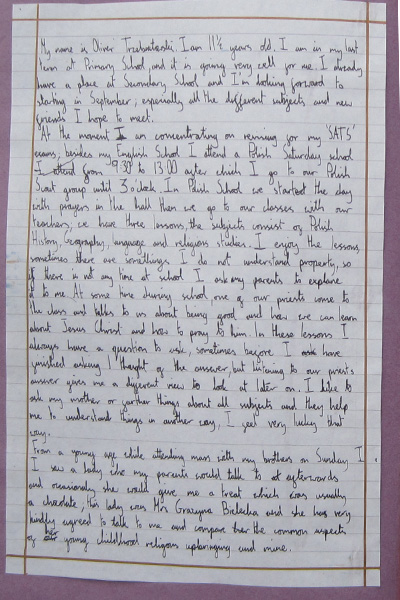 My name is Oliver I am 11½ years old. I am in my last
term at Primary School and it is going very well for me. I already
have a place at Secondary School and I'm looking forward to
starting in September, especially all the different subjects and new
friends I hope to meet.
At the moment I am concentrating on revising for my 'SATS'
exams, besides my English School I attend a Polish Saturday school
I attend from 9:30 to 13:00 after which I go to our Polish
Scout group until 3 o'clock. In Polish School we started the day
with prayers in the hall then we go to our classes with our
teachers, we have three lessons, the subjects consist of Polish
History, Geography, language and religious studies. I enjoy the lessons
sometimes there are somethings I do not understand property, so
if there is not any time at school I ask my parents to explane
it to me. At some time during school, one of our priests come to
the class and talks to us about being good and how we can learn
about Jesus Christ and how to pray to him. In these lessons I
always have a question to ask, sometimes before I have
finished asking I thought of the answer, but listening to our priests
answer gives me a different view to look at later on. I like to
ask my mother or farther things about all subjects and they help
me to understand things in another way, I feel very lucky that
way.
From a young age while attending mass with my brothers on Sunday I
I saw a lady who my parents would talk to afterwards
and ocasionaly she would give me a treat which was usually
a chocolate, this lady was Mrs Grazyna Bielecka and she has very
kindly agreed to talk to me and compare her the common aspects
of her young childhood religious upbringing and mine.